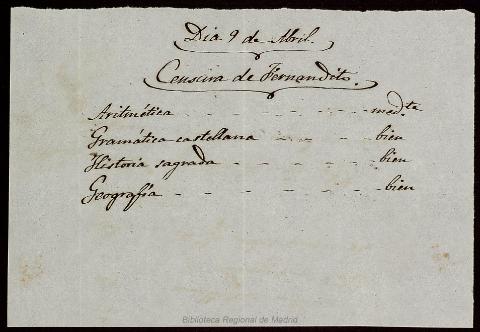 Dia 9 de Abril.
Censura de Fernandito.
Aritmética - - - - - - - med.te
Gramática castellana - - - - - bien
Historia sagrada - - - - - - bien
Geografía - - - - - - - - bien
Biblioteca Regional de Madrid